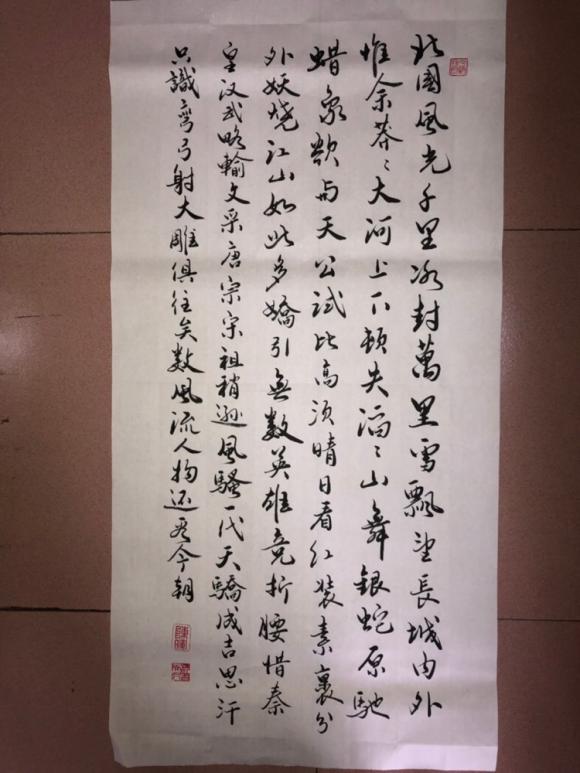 北國風光千里冰封萬里雪飄望長城内外
惟余莽〻大河上下頓失滔〻山舞銀蛇原馳
蜡象欲与天公試比高须晴日看红装素裹分
外妖燒江山如此多嬌引無数英雄竞折腰惜秦
皇汉武略輸文采唐宗宋祖稍逊風騷一代天驕成吉思汗
只識弯弓射大雕俱往矣数風流人物还看今朝